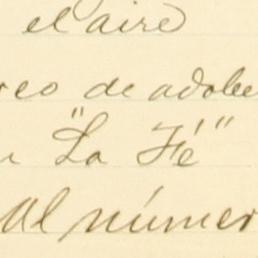 el aire
de adobe
"La Fé"
al númer